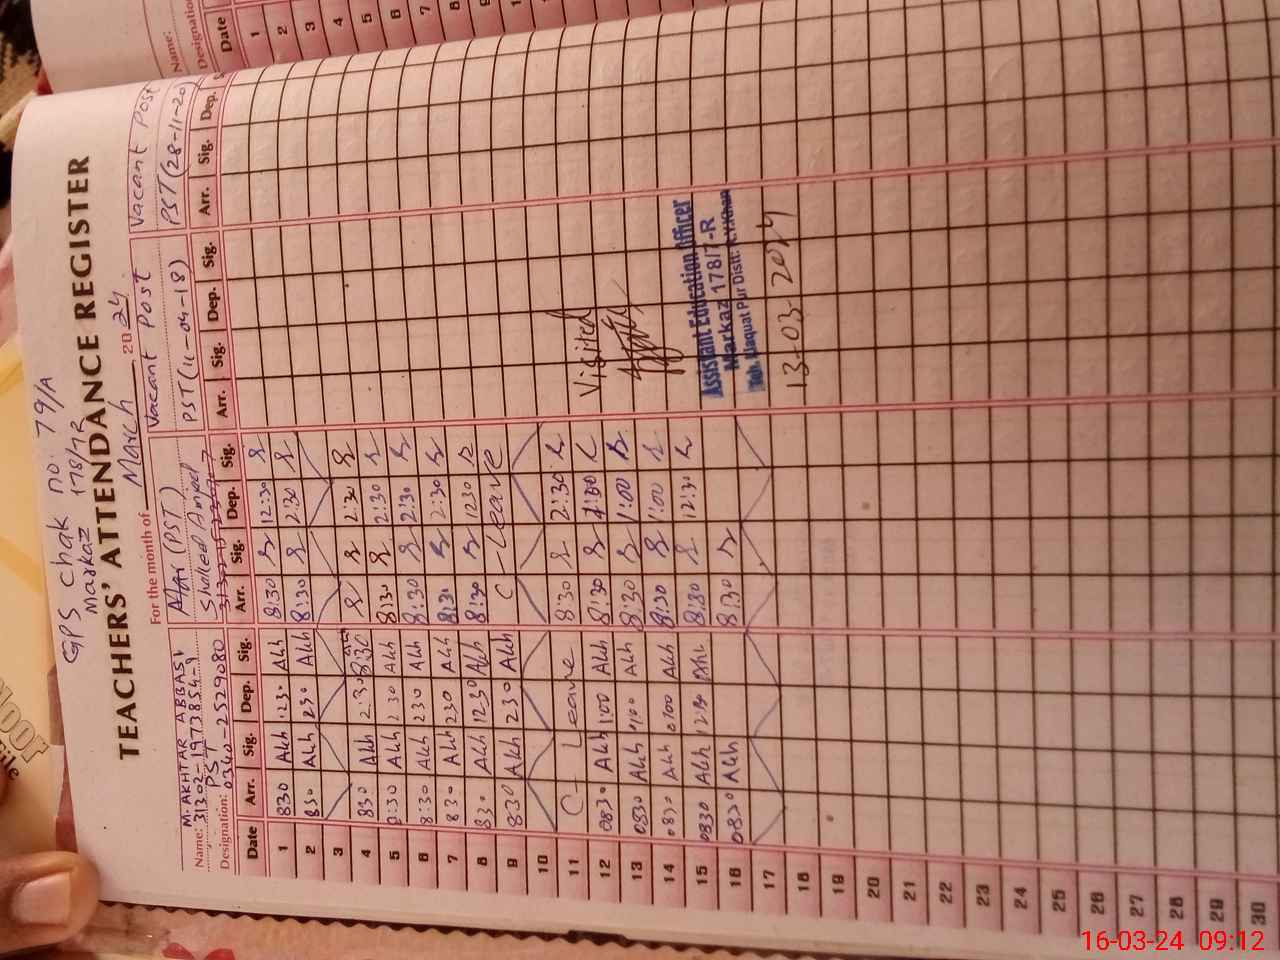 GPS Chak no: 79/A
Markaz 178/7R
TEACHERS' ATTENDANCE REGISTER
For the month of March 2024
M. AKHTAR ABBAS
Name: 31302-1973854-9
PST
Designation: 0340-2529080
(PST)
Vacant Post
PST (11-04-18)
Vacant Post
PST (28-11-20)
Date Arr. Sig. Dep. Sig. Arr. Sig. Dep. Sig. Arr. Sig. Dep. Sig. Arr. Sig. Dep.
1 830 Akh 230 Akh 8:30 12:30
2 830 Akh 230 Akh 8:30 2:30
3
4 830 Akh 2:30 8:30 2:30
5 8:30 Akh 230 Akh 8:30 2:30
6 8:30 Akh 230 Akh 8:30 2:30
7 830 Akh 230 Akh 8:30 2:30
8 830 Akh 1230 Akh 8:30 1230
9 830 Akh 230 Akh C - Leave
10
11 C - Leave 8:30 2:30
12 0830 Akh 1:00 Akh 8:30
13 0830 Akh 1:00 Akh 8:30 1:00
14 0830 Akh Akh 8:30 1:00
15 0830 Akh Akh 8:30 12:30
16 0830 Akh 8:30
17
18
19
20
21
22
23
24
25
26
27
28
29
30
Visited
Assistant Education Officer
Markaz 178/7-R
Teh. Liaquat Pur Distt: R.Y.Khan
13-03-2024
Name:
Designation
Date
1
2
3
4
5
6
7
8
9
16-03-24 09:12